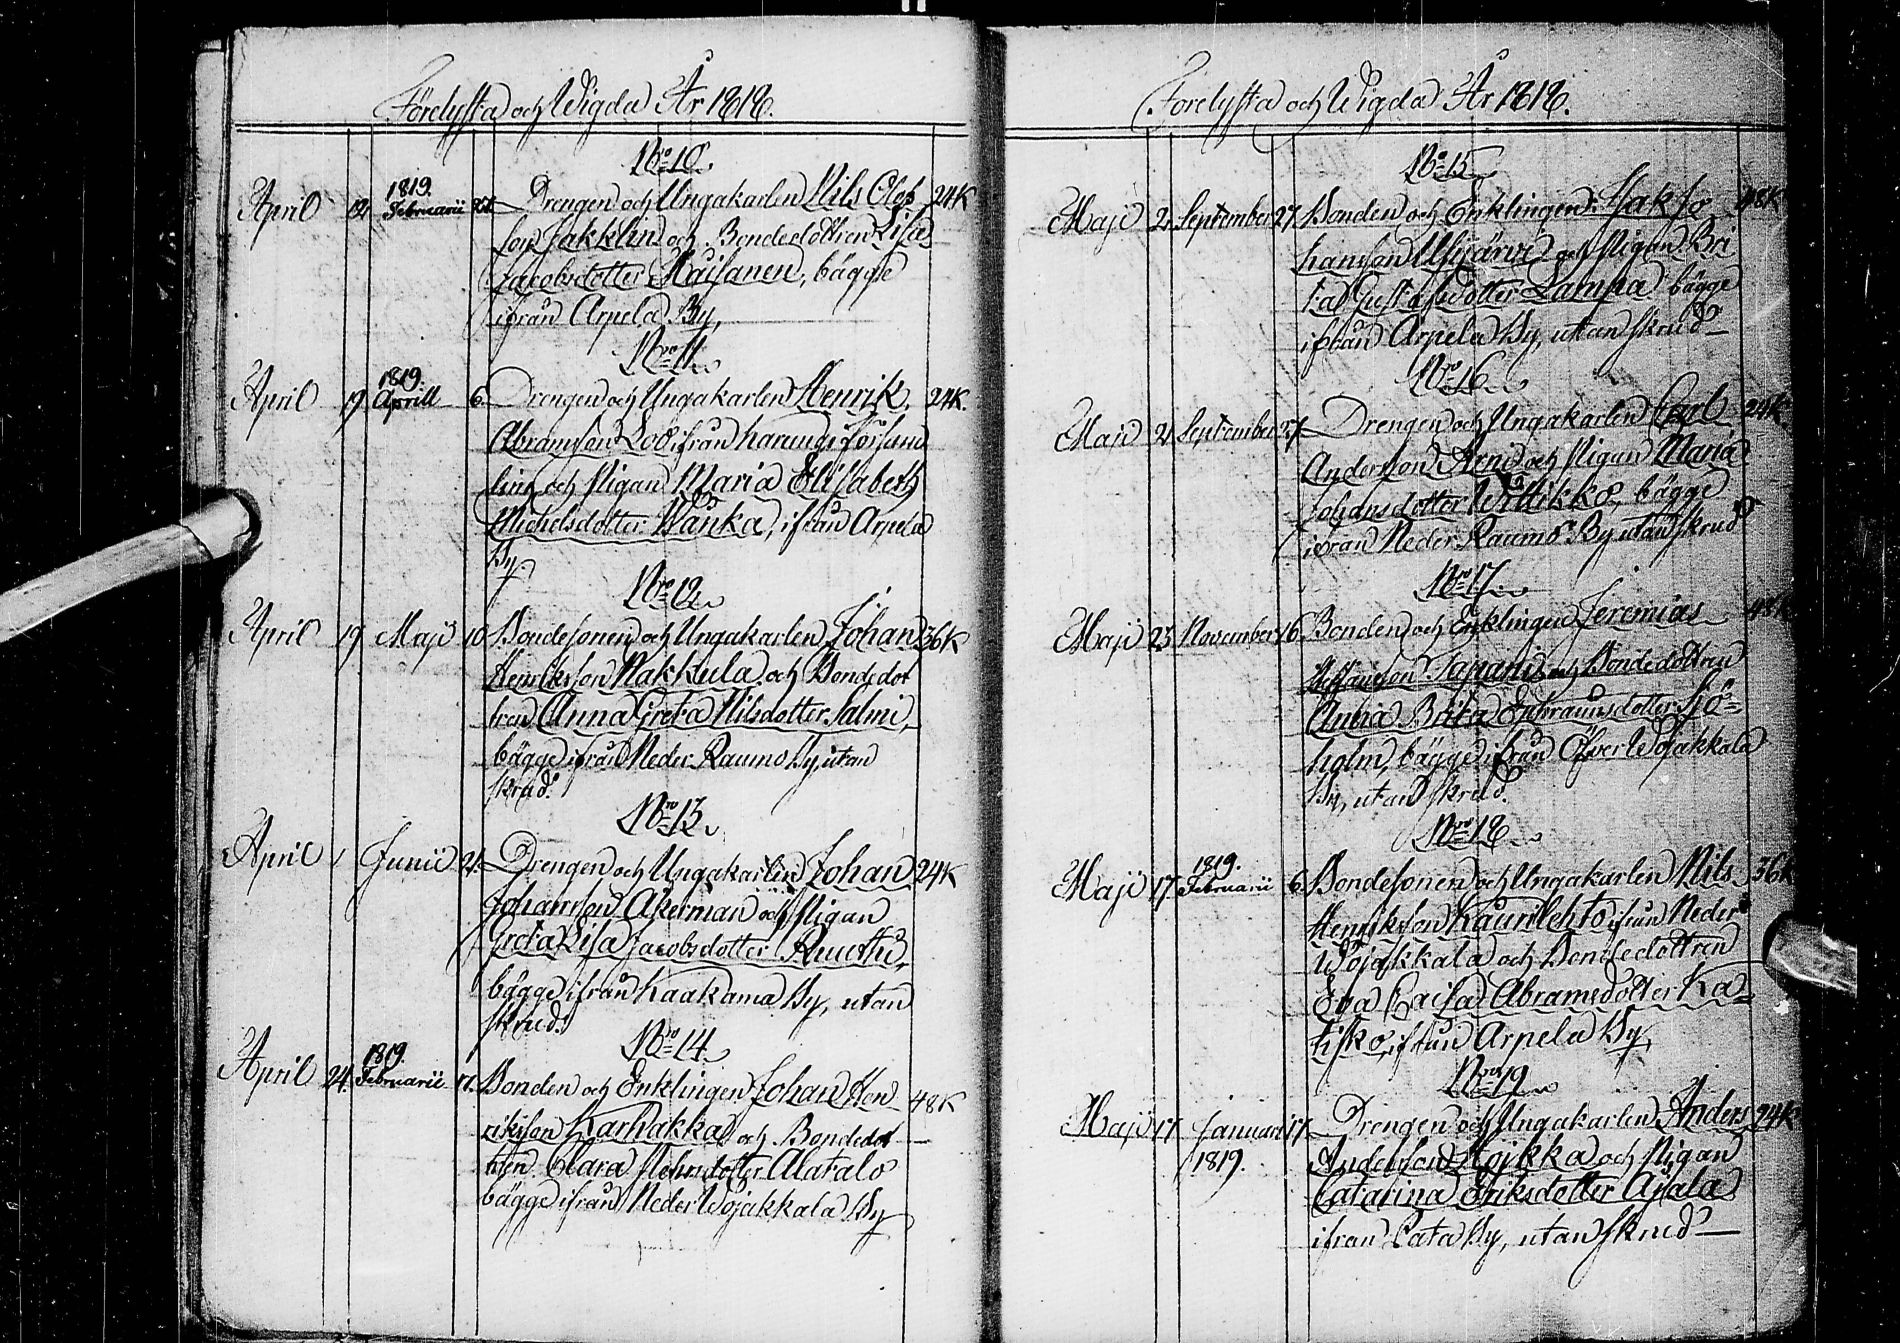 Förelysta och Wigda År 1818.
No 10.
April 12 1819. Februarii Drengen och Ungakarlen Nils Olofs 24K
son Jakklin och Bondedottren Lisa
Jacobsdotter Kaisanen, bägge
ifrån Arpela By,
No 11.
April 19 1819. Aprill 6. Drengen och Ungakarlen Henrik 24K.
Abramson ifrån Karungi försam
ling och Pigan Maria Elisabeth
Michelsdotter Wänka, ifrån Arpela
By.
No 12.
April 19 Maji 10 Bondesonen och Ungakarlen Johan 36K
Henriksson Nakkula och Bondedot
tren Anna Greta Nilsdotter Salmi,
bägge ifrån Neder Raumo By, utan
skrud.
No 13.
April Junii 21. Drengen och Ungakarlen Johan 24K
Johansson Åkerman och Pigan
Greta Lisa Jacobsdotter
bägge ifrån Kaakama By, utan
skrud.
No 14.
April 24. 1819. Februarii 17. Bonden och Enklingen Johan Hen 48K
riksson Karhakka och Bondedot
tren Clara Alatalo
bägge ifrån Neder Wojakkala By
Förelysta och Wigda År 1818.
No 15
Maji 2 September 27. Bonden och Enklingen 48K
hansson och Pigan Bri
ta Gustafsdotter Lampa bägge
ifrån Arpela By, utan skrud
No 16
Maji 2 September 27 Drengen och Ungakarlen Carl 24K
Andersson och Pigan Maria
Johansdotter bägge
ifrån Neder Raumo By utan skrud
No 17
Maji 23 November 16. Bonden och Enklingen Jeremias 48K
Staffansson och Bondedottren
Anna Brita Ephraimsdotter Sjö=
holm, bägge ifrån Öfver Wojakkala
By, utan skrud.
No 18
Maji 17 1819. Februarii 6 Bondesonen och Ungakarlen Nils 36K
Henriksson Kaunilehto ifrån Neder
Wojakkala och Bondedottren
Eva Caisa Abramsdotter Ka=
hisko, ifrån Arpela By,
No 19
Maji 17 Januari 17. Drengen och Ungakarlen Anders 24K
1819. Andersson och Pigan
Catarina Eriksdotter Ajala
ifrån Laita By, utan skrud